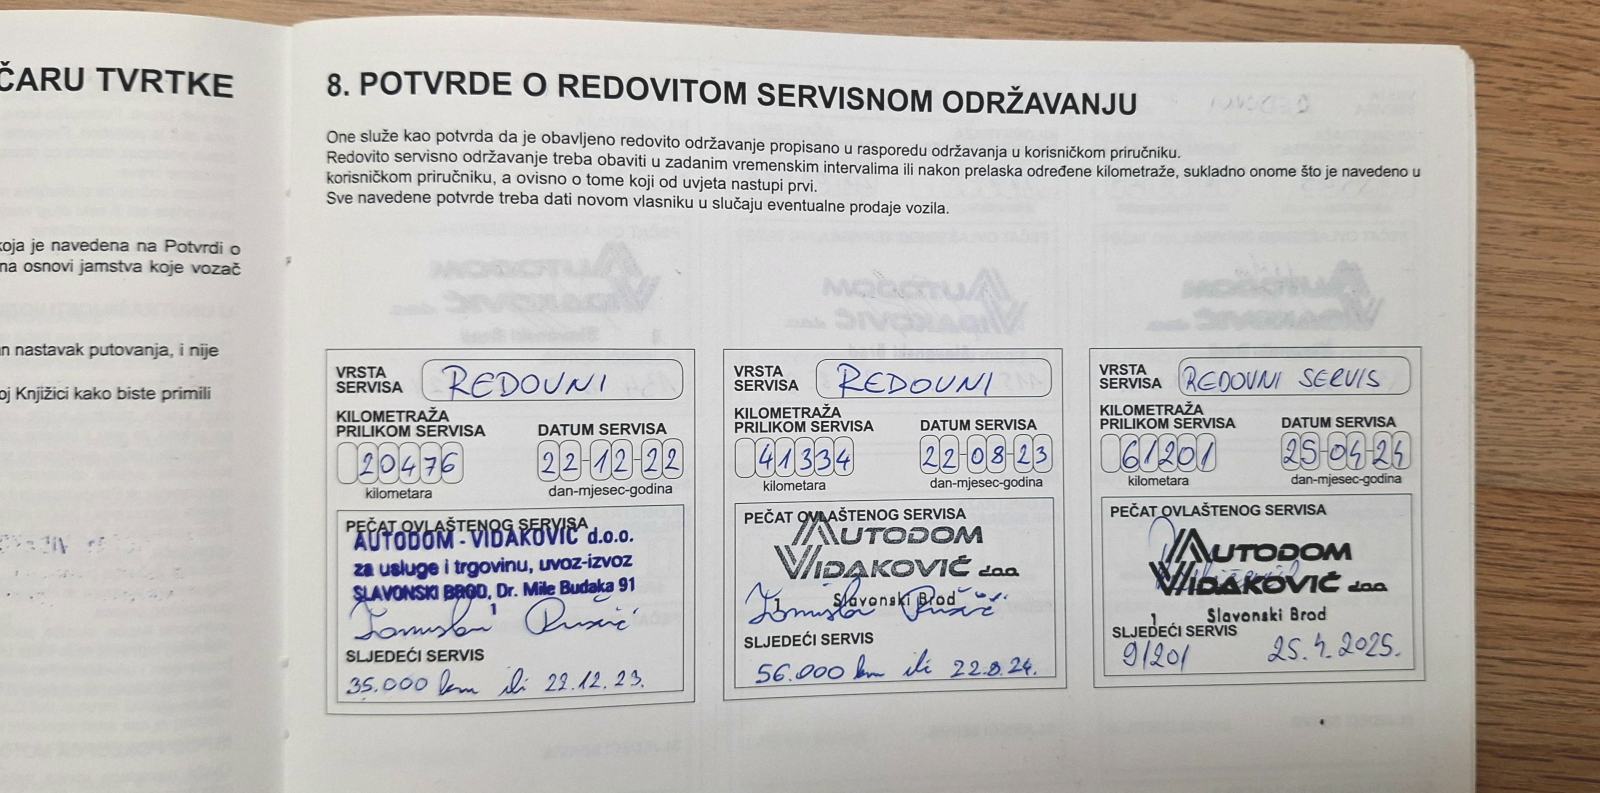 ČARU TVRTKE
koja je navedena na Potvrdi o
na osnovi jamstva koje vozač
n nastavak putovanja, i nije
oj Knjižici kako biste primili
8. POTVRDE O REDOVITOM SERVISNOM ODRŽAVANJU
One služe kao potvrda da je obavljeno redovito održavanje propisano u rasporedu održavanja u korisničkom priručniku.
Redovito servisno održavanje treba obaviti u zadanim vremenskim intervalima ili nakon prelaska određene kilometraže, sukladno onome što je navedeno u
korisničkom priručniku, a ovisno o tome koji od uvjeta nastupi prvi.
Sve navedene potvrde treba dati novom vlasniku u slučaju eventualne prodaje vozila.
VRSTA
SERVISA
REDOVNI
KILOMETRAŽA
PRILIKOM SERVISA
DATUM SERVISA
20476
22-12-22
kilometara
dan-mjesec-godina
PEČAT OVLAŠTENOG SERVISA
AUTODOM - VIDAKOVIĆ d.o.o.
za usluge i trgovinu, uvoz-izvoz
SLAVONSKI BROD, Dr. Mile Budaka 91
1
SLJEDEĆI SERVIS
35.000 km ili 22.12.23.
VRSTA
SERVISA
REDOVNI
KILOMETRAŽA
PRILIKOM SERVISA
DATUM SERVISA
41334
22-08-23
kilometara
dan-mjesec-godina
PEČAT OVLAŠTENOG SERVISA
AUTODOM
VIDAKOVIĆ d.o.o.
1 Slavonski Brod
SLJEDEĆI SERVIS
56.000 km ili 22.8.24.
VRSTA
SERVISA
REDOVNI SERVIS
KILOMETRAŽA
PRILIKOM SERVISA
DATUM SERVISA
61201
25-04-24
kilometara
dan-mjesec-godina
PEČAT OVLAŠTENOG SERVISA
AUTODOM
VIDAKOVIĆ d.o.o.
1 Slavonski Brod
SLJEDEĆI SERVIS
91201 25.4.2025.